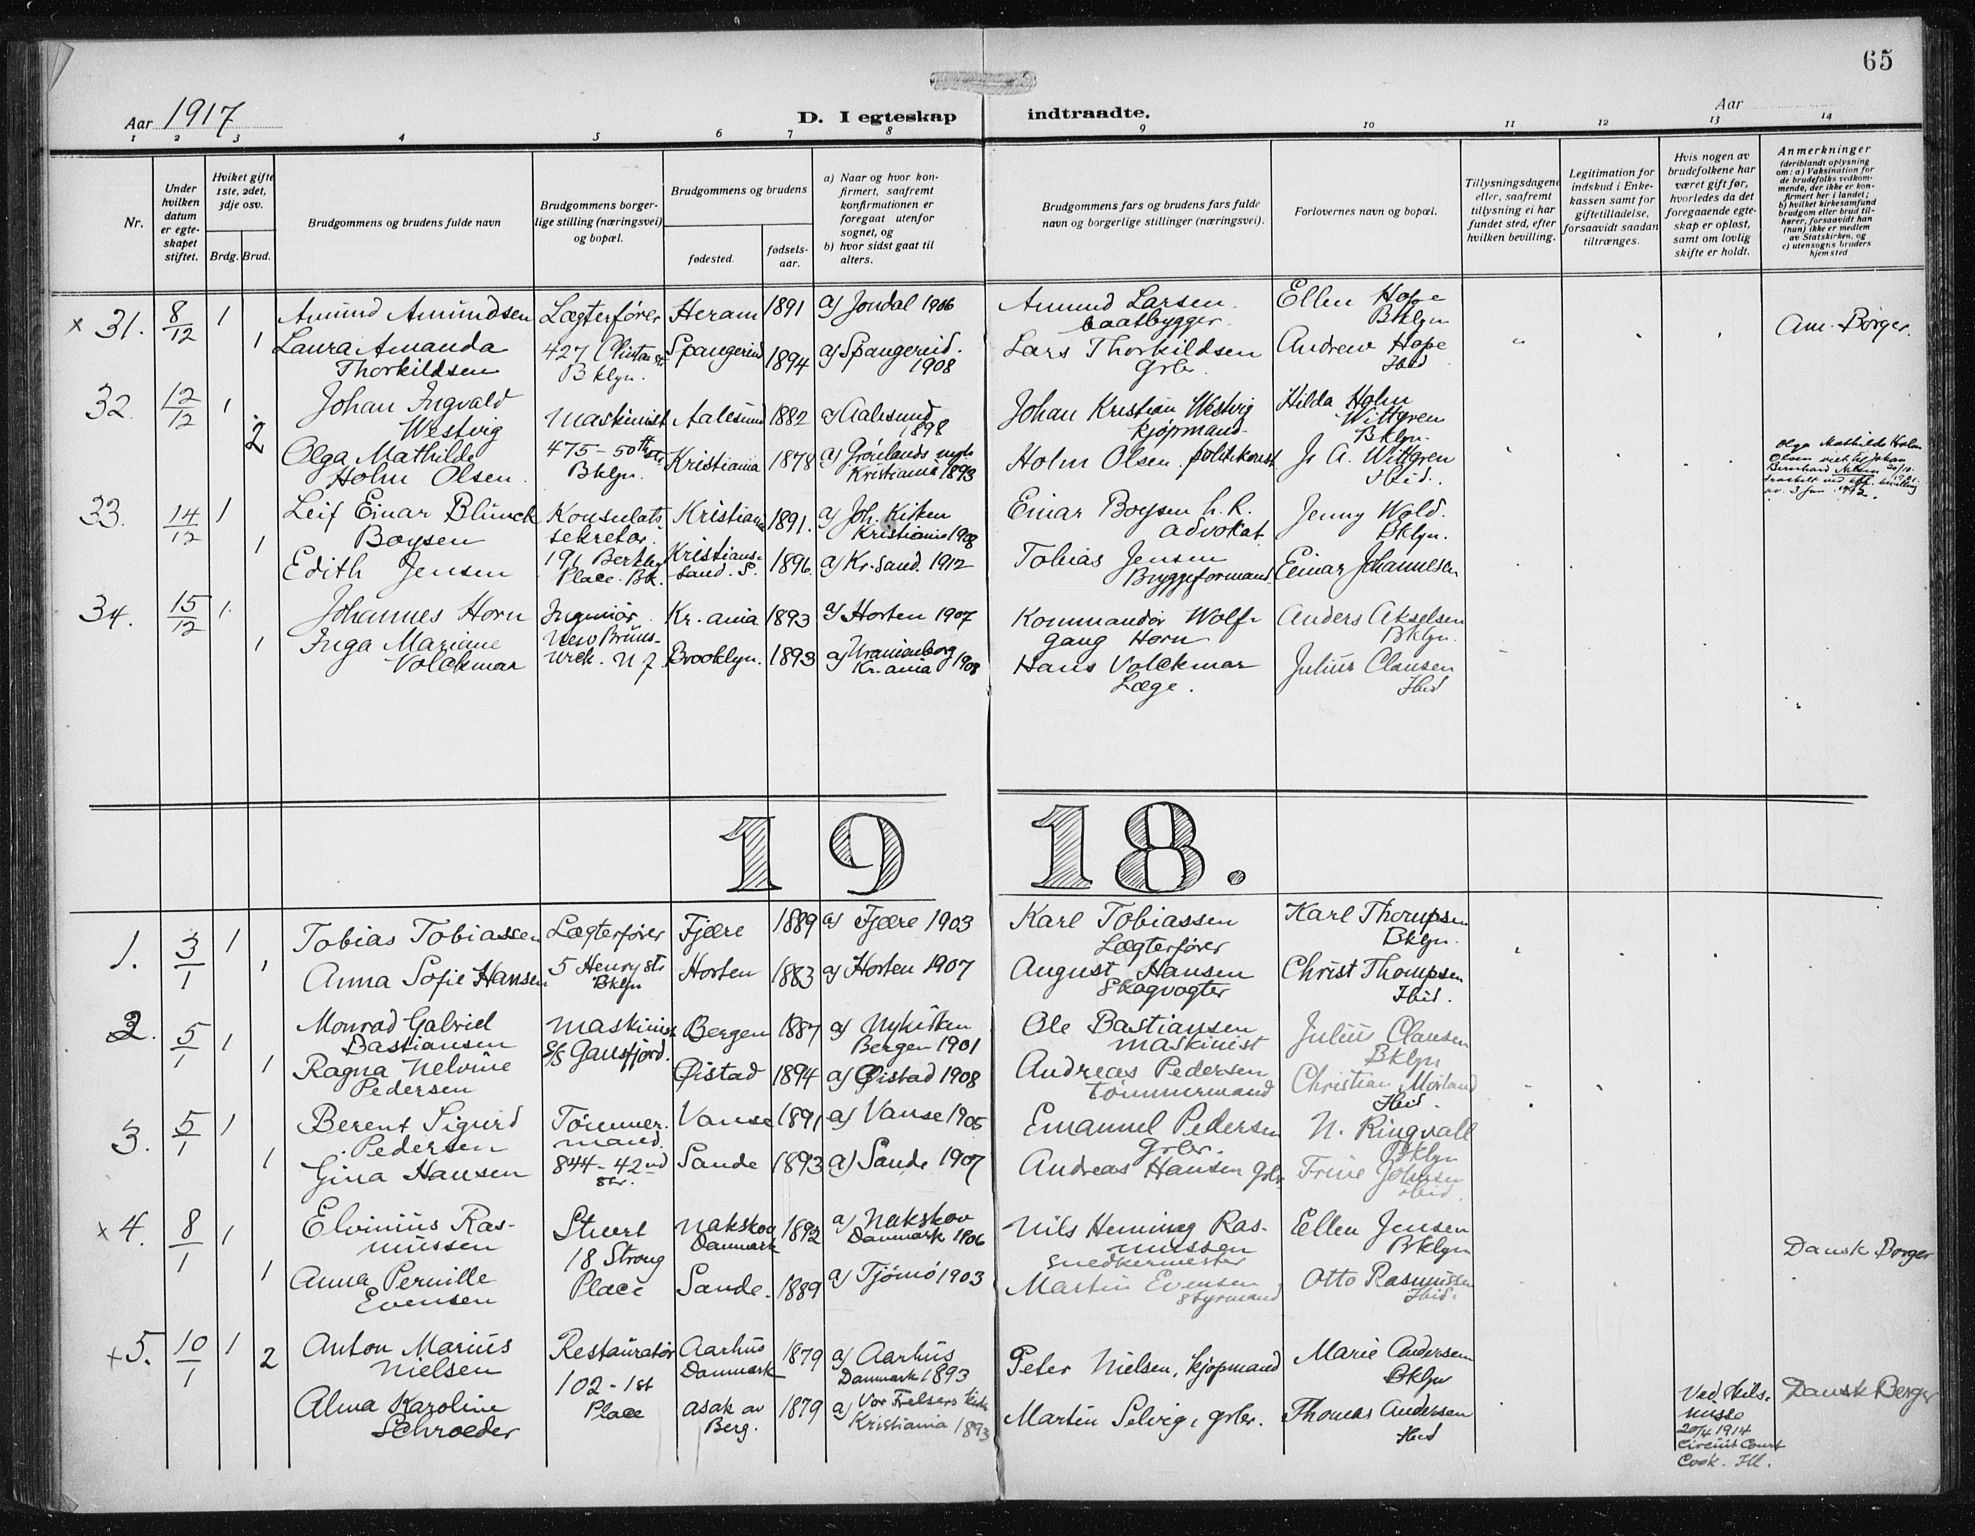 65
Aar 1917
D. I egteskap indtraadte.
Aar
1 2 3 4 5 6 7 8 9 10 11 12 13 14
Nr.
Under hvilken datum er egteskapet stiftet.
Hvilket gifte 1ste, 2det, 3dje osv.
Brdg. Brud.
Brudgommens og brudens fulde navn
Brudgommens borgerlige stilling (næringsvei) og bopæl.
Brudgommens og brudens
fødested.
fødselsaar.
a) Naar og hvor konfirmert, saafremt konfirmationen er foregaat utenfor sognet, og
b) hvor sidst gaat til alters.
Brudgommens fars og brudens fars fulde navn og borgerlige stillinger (næringsvei).
Forlovernes navn og bopæl.
Tillysningsdagene eller, saafremt tillysning ei har fundet sted, efter hvilken bevilling.
Legitimation for indskud i Enkekassen samt for giftetilladelse, forsaavidt saadan tiltrænges.
Hvis nogen av brudefolkene har været gift før, hvorledes da det foregaaende egteskap er opløst, samt om lovlig skifte er holdt.
Anmerkninger
(deriblandt oplysning om: a) Vaksination for de brudefolks vedkommende, der ikke er konfirmert her i landet; b) hvilket kirkesamfund brudgom eller brud tilhører, forsaavidt han (hun) ikke er medlem av Statskirken, og c) utensogns bruders hjemsted
x 31. 8/12 1 Amund Amundsen Lægterfører Heram 1891 a) Jondal 1906 Amund Larsen baatbygger. Ellen Hope Bklyn Am. Borger.
1 Laura Amanda Thorkildsen 427 Clinton St Bklyn. Spangereid 1894 a) Spangereid. 1908 Lars Thorkildsen Grbr. Andrew Hope Ibid
32. 12/12 1 Johan Ingvald Westvig Maskinist Aalesund 1882 a) Aalesund 1898 Johan Kristian Westvig kjøpmand Hilda Holm Wittgren Bklyn.
2 Olga Mathilde Holm Olsen 475 - 50th str Bklyn. Kristiania 1878 a) Grønlands mgh. Kristiania 1893 Holm Olsen politikonst. J. A. Wittgren Ibid. Olga Mathilde Holm Olsen viet til Johan Bernhard
33. 14/12 1 Leif Einar Blunck Boysen Konsulats sekretær Kristiania 1891. a) Joh. Kirken Kristiania 1908 Einar Boysen h.R. advokat Jenny Wold. Bklyn.
1 Edith Jensen 191 Berkley Place. Bk. Kristianssand. S. 1896 a) Kr.sand 1912 Tobias Jensen Bryggeformand Einar Johannesen
34. 15/12 1 Johannes Horn Ingeniør Kr.ania 1893 a) Horten 1907 Kommandør Wolfgang Horn Anders Akselsen Bklyn.
1 Inga Mariane Volckmar New Brunswick. N J. Brooklyn. 1893 a) Uranienborg Kr.ania 1908 Hans Volckmar Læge. Julius Clausen Ibid
1918.
1. 3/1 1 Tobias Tobiassen Lægterfører Fjære 1889 a) Fjære 1903 Karl Tobiassen Lægterfører Karl Thompsen Bklyn.
1 Anna Sofie Hansen 5 Henry str Bklyn Horten 1883 a) Horten 1907 August Hansen Skogvogter Christ Thompsen Ibid.
2. 5/1 1 Monrad Gabriel Bastiansen Maskinist S/S Gansfjord. Bergen 1887 a) Nykirken Bergen 1901 Ole Bastiansen maskinist Julius Clausen Bklyn
1 Ragna Nelvine Pedersen Øistad 1894 a) Øistad 1908 Andreas Pedersen tømmermand Christian Morland Ibid.
3. 5/1 1 Berent Sigurd Pedersen Tømmermand Vanse 1891 a) Vanse 1905 Emanuel Pedersen Grbr. N. Ringvall Bklyn
1 Gina Hansen 844 - 42nd str. Sande 1893 a) Sande 1907 Andreas Hansen Grbr Trine Johnsen Ibid.
x 4. 8/1 1 Elvinius Rasmussen Stuert Nakskov Danmark 1892 a) Nakskov Danmark 1906 Nils Henning Rasmussen snedkermester Ellen Jensen Bklyn Dansk Borger
1 Anna Pernille Evensen 18 Strong Place Sande. 1889 a) Tjømø 1903 Martin Evensen styrmand Otto Rasmussen Ibid.
x 5. 10/1 1 Anton Marius Nielsen Restauratør Aarhus Danmark 1879 a) Aarhus Danmark 1893 Peter Nielsen, kjøpmand Marie Andersen Bklyn
2 Alma Karoline Schroeder 102 - 1st Place asak av Berg. 1879 a) Vor Frelsers kirke Kristiania 1893 Martin Selvig, grbr. Thomas Andersen Ibid Ved skilsmisse 20/4 1914 Circuit Court Cook. Ill. Dansk Borger